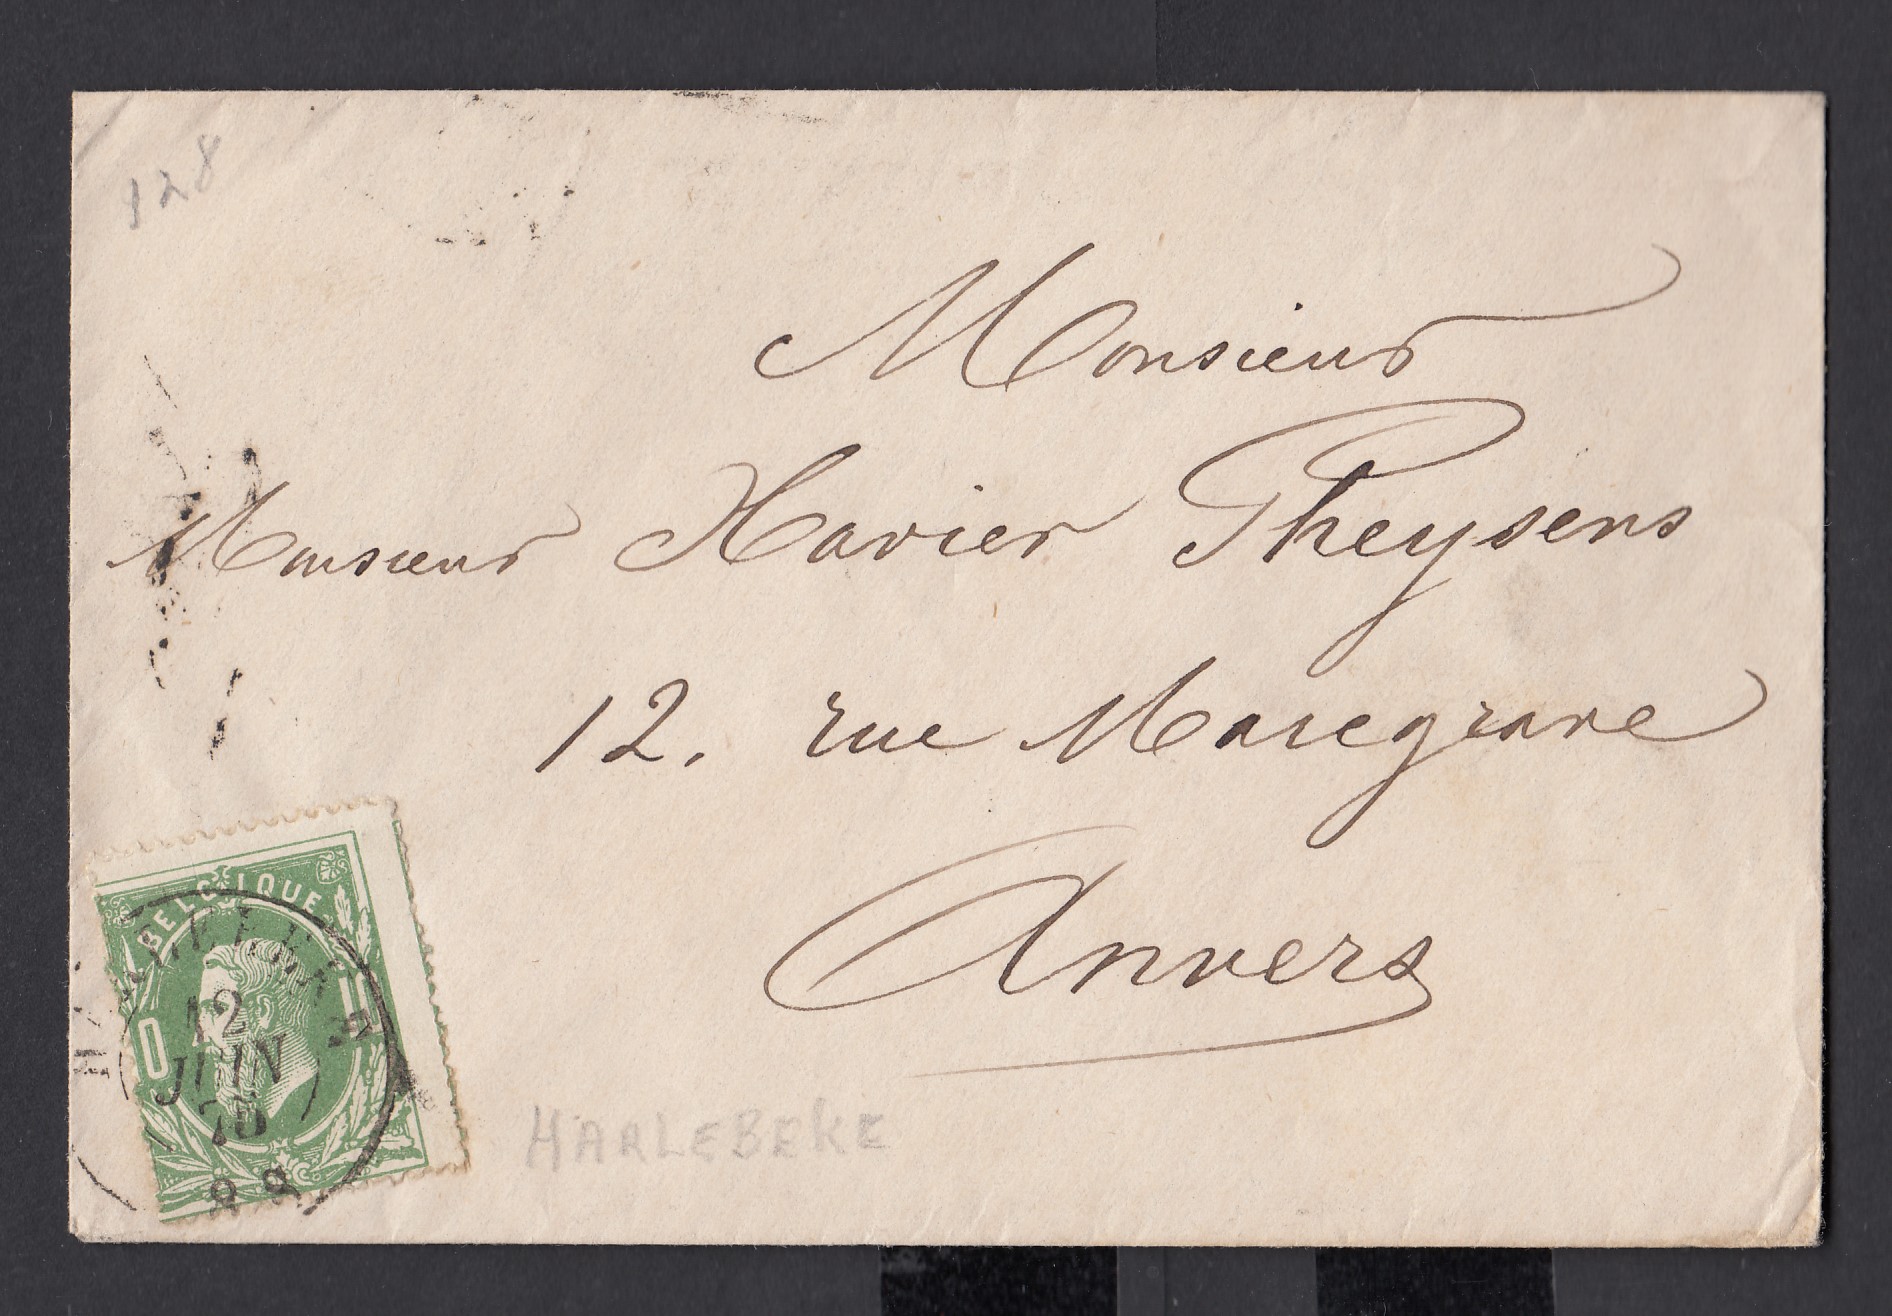 128
Monsieur
Monsieur Xavier Theysens
12. rue Marcgrave
Anvers
BELGIQUE
12
JUIN
75
HARLEBEKE